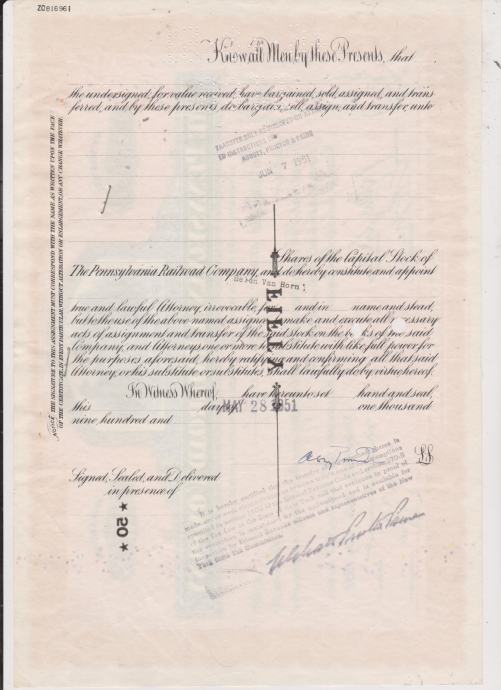 ZO816961
Know all Men by these Presents, that
the undersigned, for value received, have bargained, sold, assigned, and trans
ferred, and by these presents do bargain, sell, assign, and transfer unto
TRANSFER
ABBOTT, PROCTOR & PAINE
JUN 7 1951
Shares of the Capital Stock of
The Pennsylvania Railroad Company, and do hereby constitute and appoint
Helen Van Horn
true and lawful Attorney, irrevocable, for and in name and stead,
but to the use of the above named assignee to make and execute all necessary
acts of assignment and transfer of the said stock on the books of the said
Company, and Attorneys one or more to substitute with like full power for
the purposes aforesaid, hereby ratifying and confirming all that said
Attorney, or his substitute or substitutes, shall lawfully do by virtue hereof.
In Witness Whereof, have hereunto set hand and seal,
this day of MAY 28 1951 one thousand
nine hundred and
L.S.
Signed, Sealed, and Delivered
in presence of
★ 50 ★
It is hereby certified that the
New
York State Tax Commission.
NOTICE THE SIGNATURE TO THIS ASSIGNMENT MUST CORRESPOND WITH THE NAME AS WRITTEN UPON THE FACE
OF THE CERTIFICATE, IN EVERY PARTICULAR, WITHOUT ALTERATION OR ENLARGEMENT, OR ANY CHANGE WHATEVER.